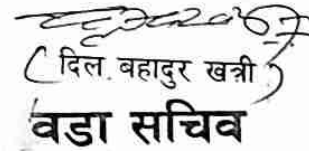 ( दिल. बहादुर खत्री )
वडा सचिव